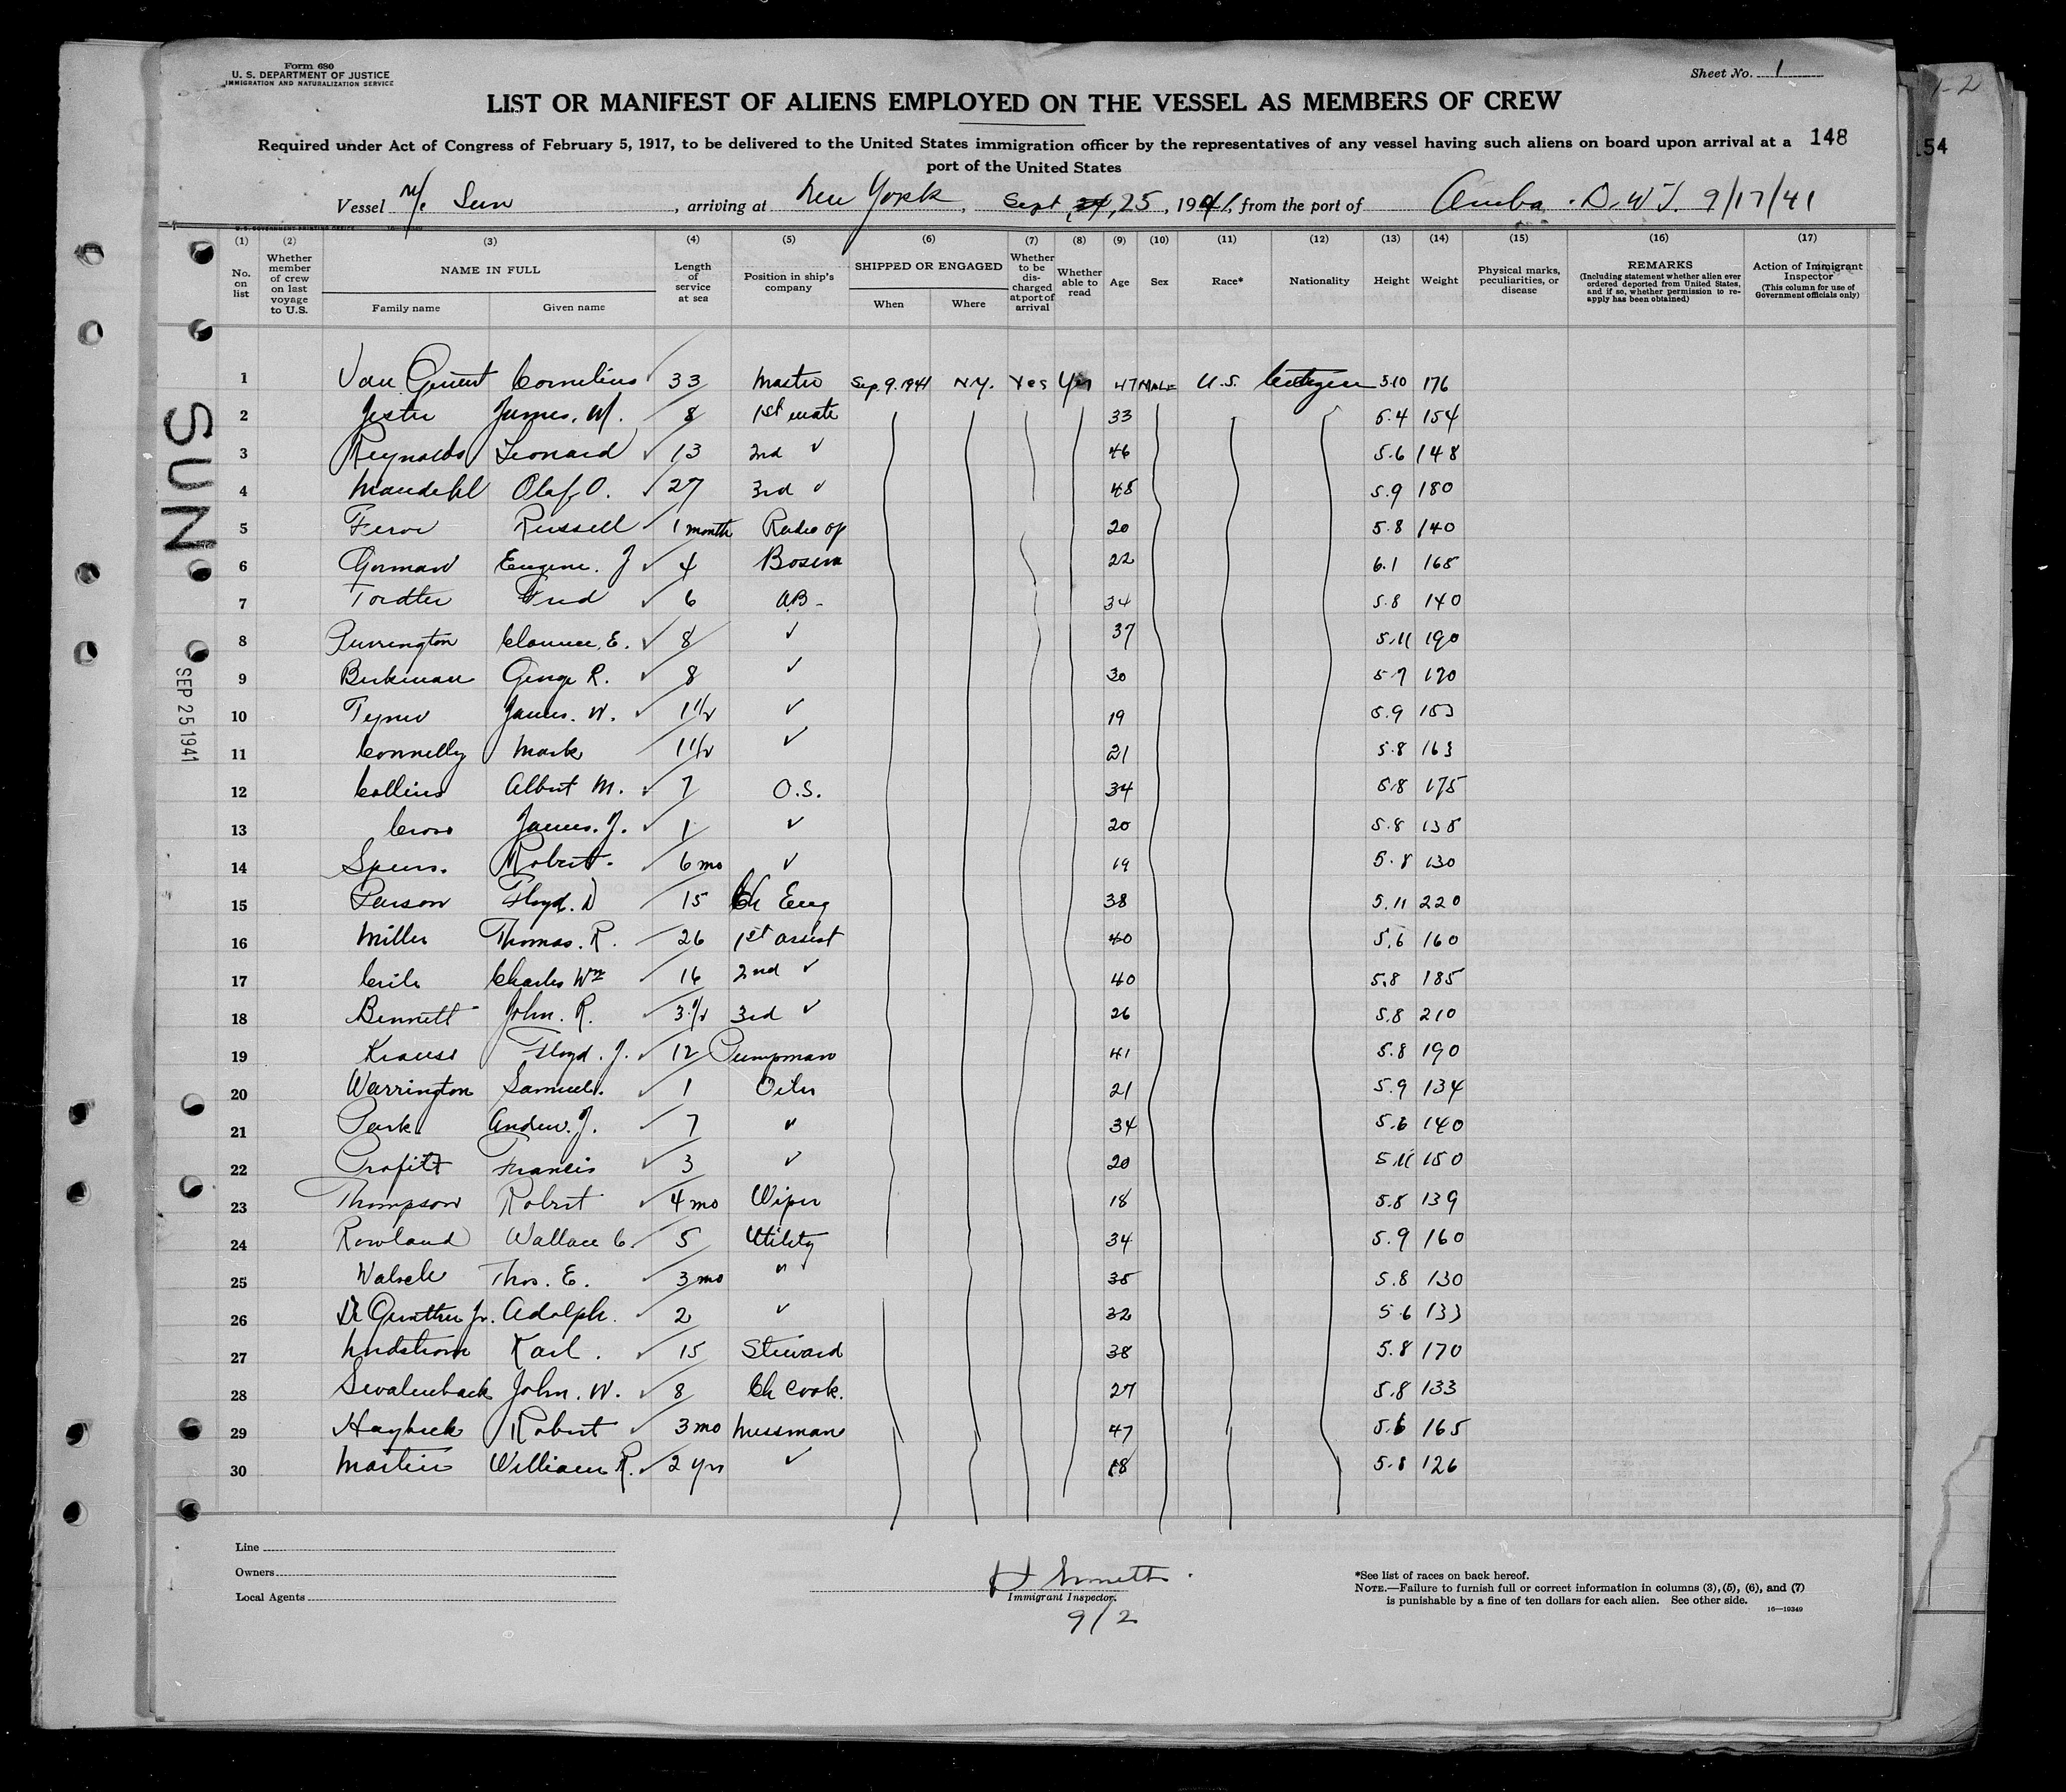 Form 680
U. S. DEPARTMENT OF JUSTICE
IMMIGRATION AND NATURALIZATION SERVICE
Sheet No. 1
LIST OR MANIFEST OF ALIENS EMPLOYED ON THE VESSEL AS MEMBERS OF CREW
Required under Act of Congress of February 5, 1917, to be delivered to the United States immigration officer by the representatives of any vessel having such aliens on board upon arrival at a
port of the United States
148
54
Vessel Sun, arriving at New York, Sept 25, 1941, from the port of Aruba. D.W.I. 9/17/41
U. S. GOVERNMENT PRINTING OFFICE 16—19349
(1) (2) (3) (4) (5) (6) (7) (8) (9) (10) (11) (12) (13) (14) (15) (16) (17)
No. on list
Whether member of crew on last voyage to U.S.
NAME IN FULL
Family name Given name
Length of service at sea
Position in ship's company
SHIPPED OR ENGAGED
When Where
Whether to be dis-charged at port of arrival
Whether able to read
Age
Sex
Race*
Nationality
Height
Weight
Physical marks, peculiarities, or disease
REMARKS
(Including statement whether alien ever ordered deported from United States, and if so, whether permission to re-apply has been obtained)
Action of Immigrant Inspector
(This column for use of Government officials only)
1 Cornelius 33 Master Sep. 9. 1941 N.Y. Yes Yes 47 MALE U.S. Citizen 5.10 176
2 Jester James. W. 8 1st mate 33 5.4 154
3 Reynolds Leonard ✓ 13 2nd ✓ 46 5.6 148
4 Olaf O. ✓ 27 3rd ✓ 48 5.9 180
5 Russell ✓ 1 month Radio op 20 5.8 140
6 Gorman Eugene. J ✓ 4 Bosun 22 6.1 165
7 Fred ✓ 6 A.B- 34 5.8 140
8 Purrington Clarence. E. ✓ 8 ✓ 37 5.11 190
9 George R. ✓ 8 ✓ 30 5.7 170
10 James. W. ✓ 1 1/2 ✓ 19 5.9 153
11 Connelly Mark 1 1/2 ✓ 21 5.8 163
12 Collins Albert M. ✓ 7 O.S. 34 5.8 175
13 Cross James. J. ✓ 1 ✓ 20 5.8 138
14 Robert. ✓ 6 mo ✓ 19 5.8 130
15 Floyd. D 15 Ch Eng 38 5.11 220
16 Miller Thomas. R. 26 1st assist 40 5.6 160
17 Charles Wm 16 2nd ✓ 40 5.8 185
18 Bennett John. R. ✓ 3 1/2 3rd ✓ 26 5.8 210
19 Krause Floyd. J. ✓ 12 Pumpman 41 5.8 190
20 Warrington Samuel. ✓ 1 Oiler 21 5.9 134
21 Park. Andew. J. ✓ 7 " 34 5.6 140
22 Profitt Francis ✓ 3 ✓ 20 5.11 150
23 Thompson Robert ✓ 4 mo Wiper 18 5.8 139
24 Rowland Wallace C. ✓ 5 Utility 34 5.9 160
25 Thos. E. ✓ 3 mo " 35 5.8 130
26 Jr. Adolph. ✓ 2 ✓ 32 5.6 133
27 Karl. ✓ 15 Steward 38 5.8 170
28 John. W. ✓ 8 Ch Cook. 27 5.8 133
29 Robert ✓ 3 mo Messman 47 5.6 165
30 Martin William R. ✓ 2 yrs ✓ 18 5.8 126
SUN
SEP 25 1941
Line
Owners
Local Agents
Immigrant Inspector.
9/2
*See list of races on back hereof.
NOTE.—Failure to furnish full or correct information in columns (3), (5), (6), and (7)
is punishable by a fine of ten dollars for each alien. See other side.
16—19349